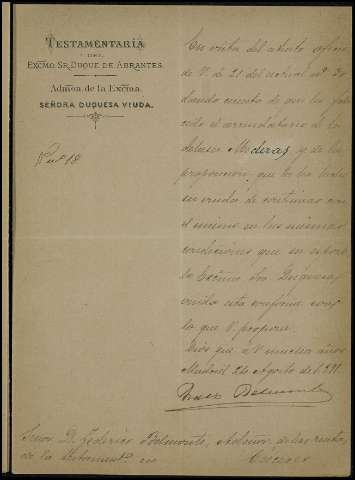 TESTAMENTARÍA
DEL
EXCMO. SR. DUQUE DE ABRANTES.
Admon. de la Excma.
SEÑORA DUQUESA VIUDA.
Num. 18
En vista del atento oficio
de V. de 21 del actual nº
dando cuenta de que ha falle
cido el arrendatario de la
dehesa Mederas, y de la
proposicion que le ha hecho
su viuda de continuar con
el mismo en las mismas
condiciones que su esposo
la Excma. Sra. Duquesa
viuda esta conforme con
lo que V. propone.
Dios gue. á V. muchos años
Madrid 26 Agosto de 1891.
Belmonte
Señor D. Federico Belmonte, Admor. de las rentas
de la Testamentª en Cáceres